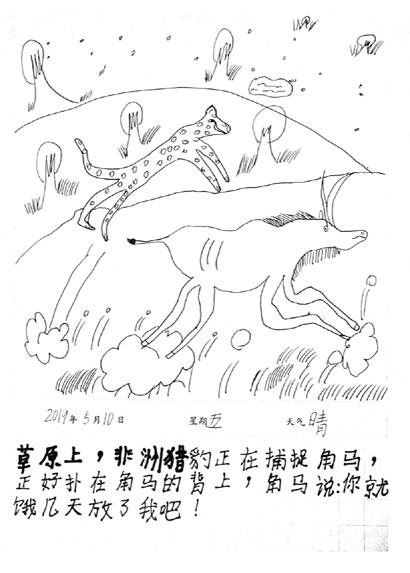 2019年5月10日 星期五 天气晴
草原上，非洲猎豹正在捕捉角马，
正好扑在角马的背上，角马说：你就
饿几天放了我吧！